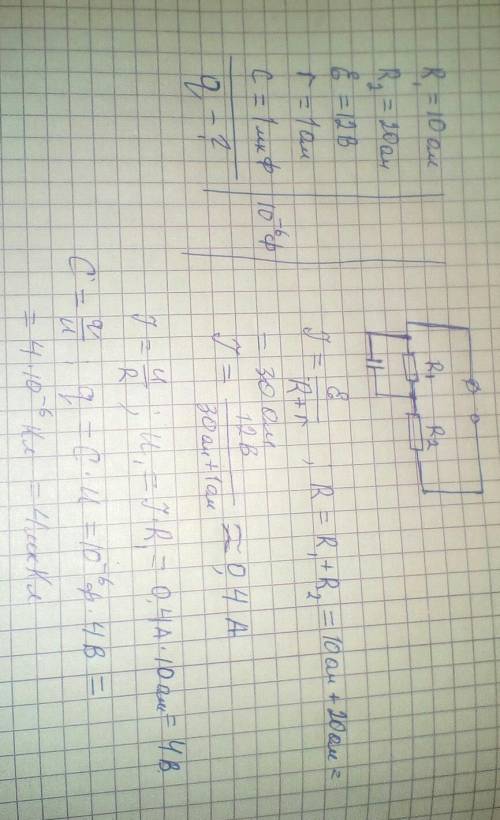 R₁ = 10 ом
R₂ = 20 ом
Ɛ = 12 В
r = 1 ом
C = 1 мкФ | 10⁻⁶ Ф
q₁ - ?
R₁ R₂
J = Ɛ/(R+r), R = R₁ + R₂ = 10 ом + 20 ом =
= 30 ом
J = 12 В/(30 ом + 1 ом) ≈ 0,4 А
J = U/R; U₁ = J·R₁ = 0,4 А · 10 ом = 4 В
C = q/U; q₁ = C·U = 10⁻⁶ Ф · 4 В =
= 4·10⁻⁶ Кл = 4 мкКл